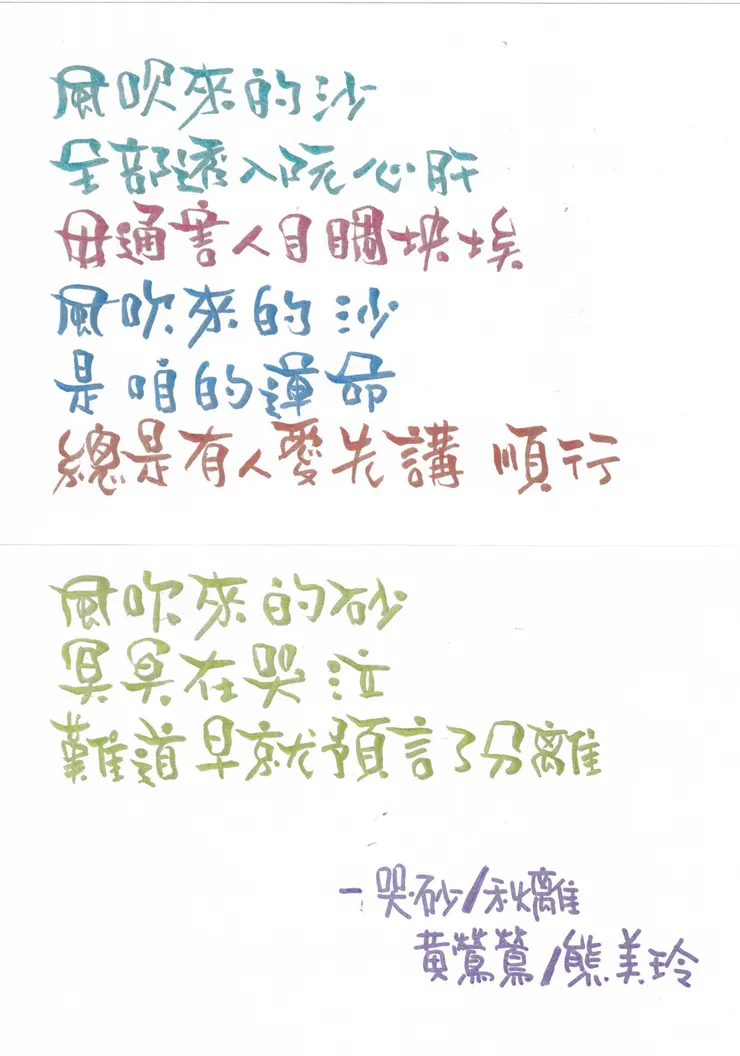 風吹來的沙
全部透入阮心肝
毋通害人目睭坱埃
風吹來的沙
是咱的運命
總是有人愛先講 順行
風吹來的砂
冥冥在哭泣
難道早就預言了分離
－哭砂/秋離
黃鶯鶯/熊美玲